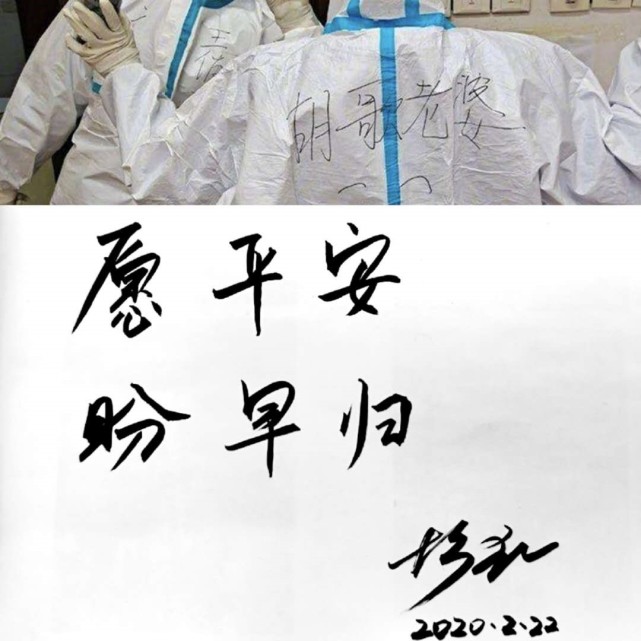 胡歌老婆
愿平安
盼早归
2020.2.22